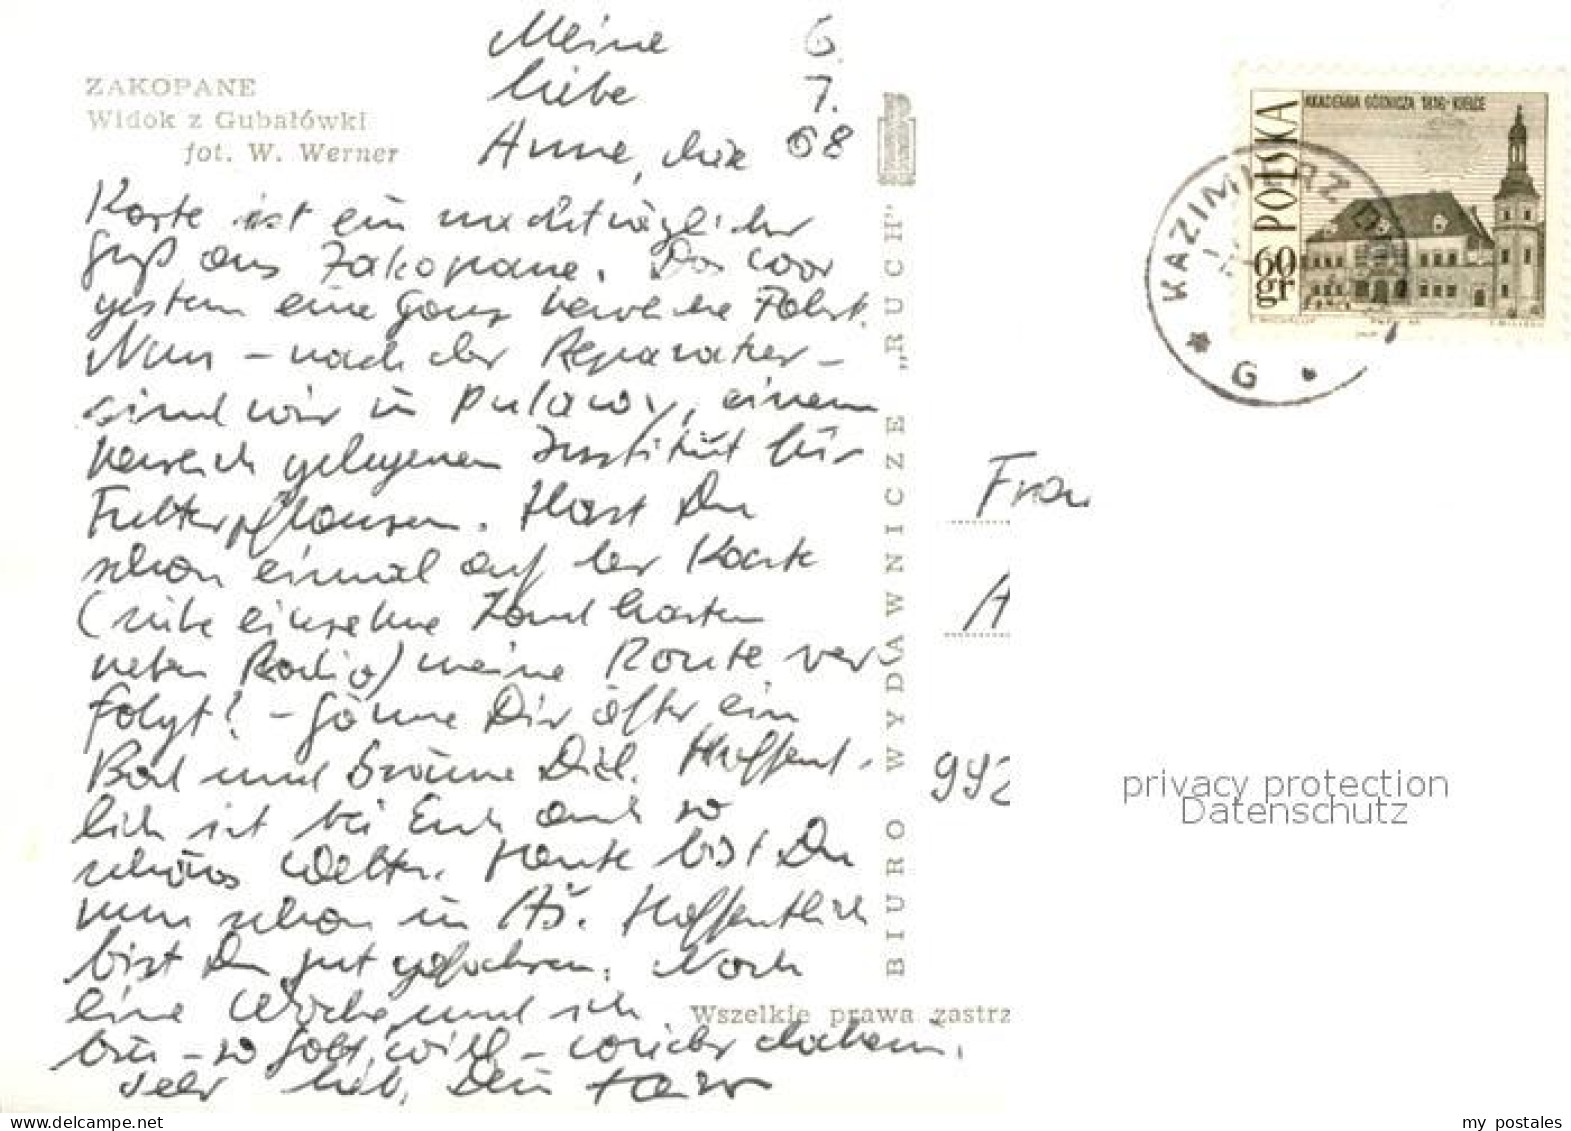 ZAKOPANE
Widok z Gubałówki
fot. W. Werner
Meine 6.
liebe 7.
Anne, die 68
Karte ist ein nachträglicher
Gruß aus Zakopane. Das war
gestern eine ganz herrliche Fahrt.
Nun – nach der Reparatur –
sind wir in Pulawy, einem
herrlich gelegenen Institut für
Futterpflanzen. Hast Du
schon einmal auf der Karte
(siehe einzelne Landkarten
neben Radio) meine Route ver
folgt? – Gönne Dir öfter ein
Bad und bräune Dich. Hoffent-
lich ist bei Euch auch so
schönes Wetter. Heute bist Du
nun schon in Hoffentlich
bist Du gut gefahren. Noch
eine Woche und ich
bin – so Gott will – wieder daheim.
Sehr lieb, Dein
BIURO WYDAWNICZE „RUCH”
Wszelkie prawa zastrz
AKADEMIA GÓRNICZA 1816 KIELCE
POLSKA
60 gr
KAZIMIERZ
G
Frau
A
992
privacy protection
Datenschutz
delcampe.net
my_postales